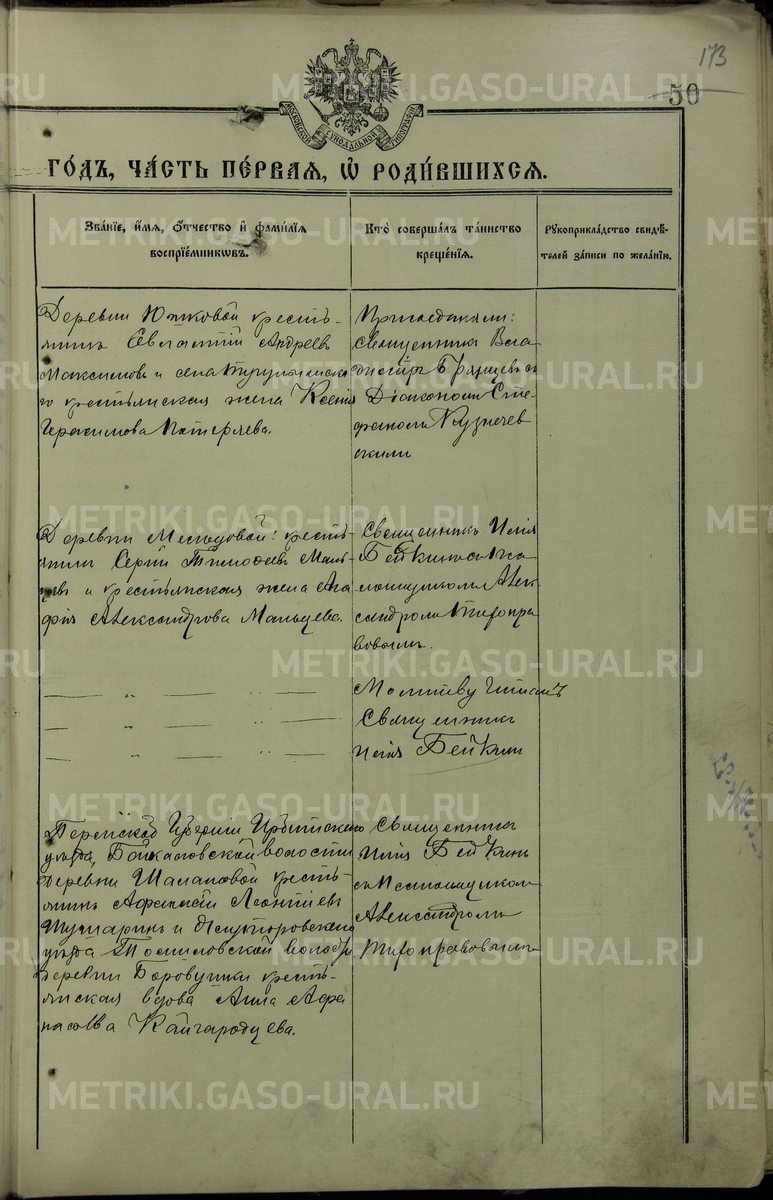 173
50
МОСКОВСКОЙ СѴНОДАЛЬНОЙ ТИПОГРАФІИ
ГО́ДЪ, ЧА́СТЬ ПЕ́РВАЯ, Ѡ҆ РОДИ́ВШИХСЯ.
Зва́нїе, и҆́мя, ѻ҆́тчество и҆ фами́лїя
воспрїе́мникѡвъ.
Кто̀ соверша́лъ та́инство
креще́нїя.
Рꙋкоприкла́дство свидѣ́-
телей за́писи по жела́нїю.
Деревни кресть-
янинъ Евгентій Андреевъ
Максимовъ и села
го крестьянская жена Ксенія
Герасимова
священникъ Вла
диміръ
Діакономъ Сте-
фаномъ Кузнечев
скимъ
Деревни крестъ-
янинъ Сергій Тимофеевъ Маль
цевъ и крестьянская жена Ага
фія Александрова Мальцева.
Священникъ Илія
Бейкинъ съ Пса
ломщикомъ Алек-
сандромъ Тихопра
вовымъ.
— „ — „ —
— „ — „ —
— „ — „ —
Молитву читалъ
Священникъ
Илія Бейкинъ
Пермской Губерніи Ирбитскаго
уѣзда, Байкаловской волости
деревни Шалаповой кресть-
янинъ Афанасій Леонтіевъ
Шушаринъ и
уѣзда волости
деревни Боровушки кресть-
янская вдова Анна Афа
насьева Кайгародцева.
Священникъ
Илія Бейкинъ
съ Псаломщикомъ
Александромъ
Тихоправовымъ
METRIKI.GASO-URAL.RU